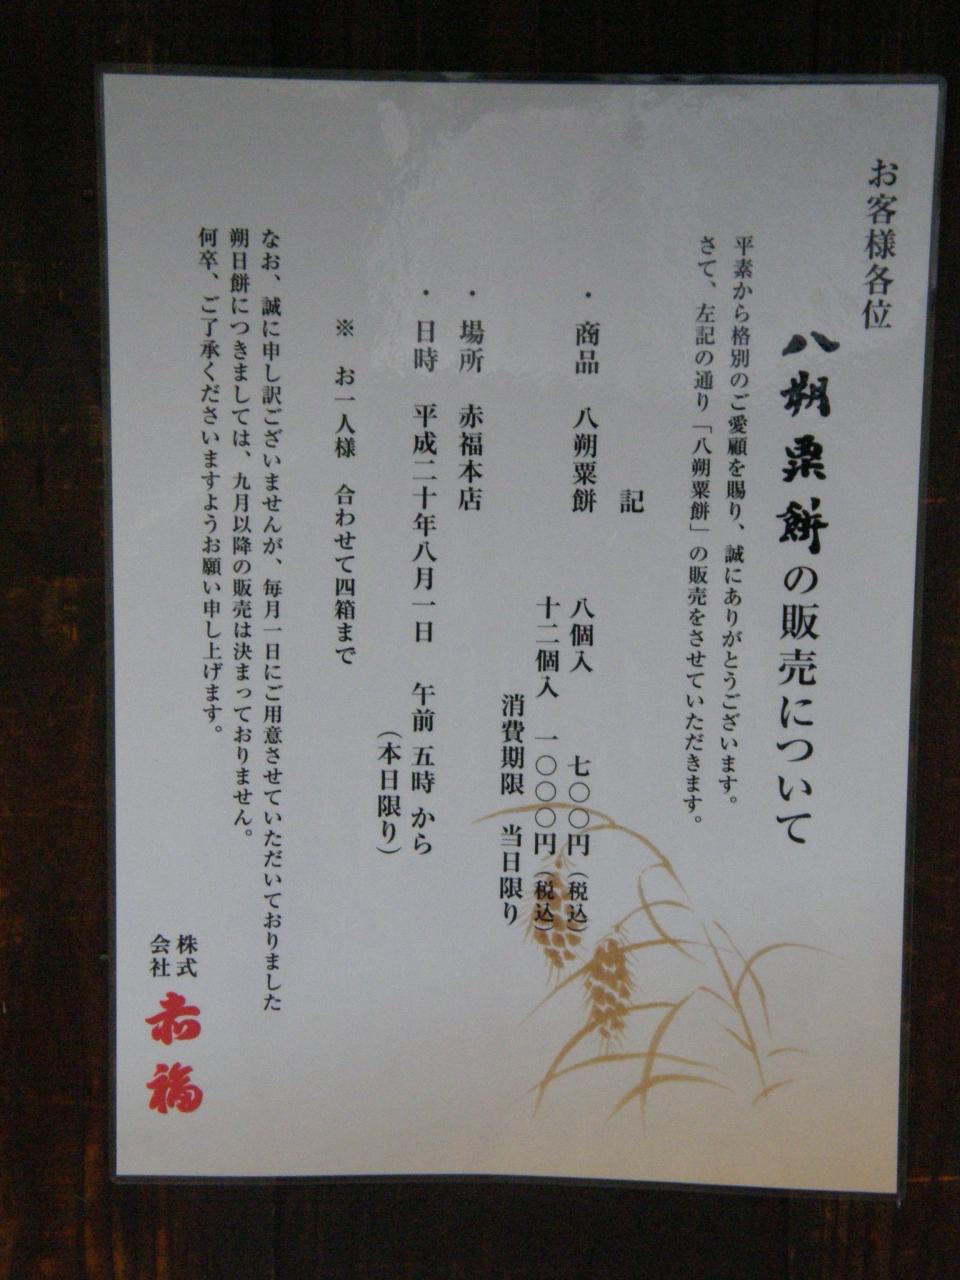 お客様各位
八朔粟餅の販売について
平素から格別のご愛顧を賜り、誠にありがとうございます。
さて、左記の通り「八朔粟餅」の販売をさせていただきます。
記
・商品 八朔粟餅 八個入 七〇〇円（税込）
十二個入 一〇〇〇円（税込）
消費期限 当日限り
・場所 赤福本店
・日時 平成二十年八月一日 午前五時から
（本日限り）
※ お一人様 合わせて四箱まで
なお、誠に申し訳ございませんが、毎月一日にご用意させていただいておりました
朔日餅につきましては、九月以降の販売は決まっておりません。
何卒、ご了承くださいますようお願い申し上げます。
株式会社 赤福